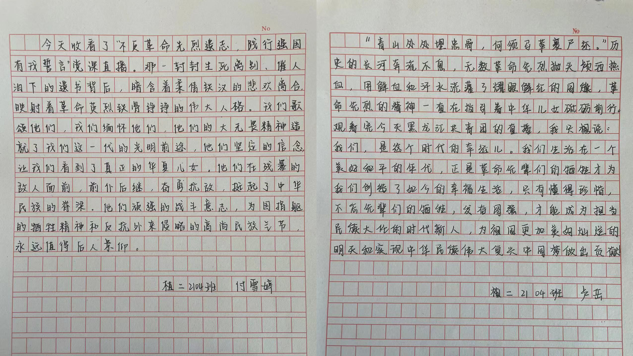 No
今天收看了"不负革命先烈遗志,践行强国
有我誓言"党课直播。那一封封生死离别,催人
泪下的遗书背后,暗含着柔情铁汉的悲欢离合,
映射着革命英烈铁骨铮铮的伟大人格。我们歌
颂他们,我们缅怀他们,他们的大无畏精神造
就了我们这一代的光明前途,他们坚定的信念
让我们看到了真正的华夏儿女,他们在残暴的
敌人面前,前仆后继,奋勇抗敌,挺起了中华
民族的脊梁,他们顽强的战斗意志,为国捐躯
的牺牲精神和反抗外来侵略的高尚民族气节,
永远值得后人景仰。
植二2104班 付雪婷
No
"青山处处埋忠骨,何须马革裹尸还。"历
史的长河奔流不息,无数革命先烈抛头颅洒热
血,用鲜血和汗水浇灌了耀眼鲜红的国旗,革
命先烈的精神一直在指引着中华儿女砥砺前行。
观看完今天黑龙江共青团的直播,我只想说:
我们,是这个时代的幸运儿。我们生活在一个
美好和平的年代,正是革命先辈们的牺牲才为
我们创造了如今的幸福生活,只有懂得珍惜,
不忘先辈们的牺牲,发奋图强,才能成为担当
民族大任的时代新人,为祖国更加美好灿烂的
明天和实现中华民族伟大复兴中国梦做出贡献
植二2104班 卢岳